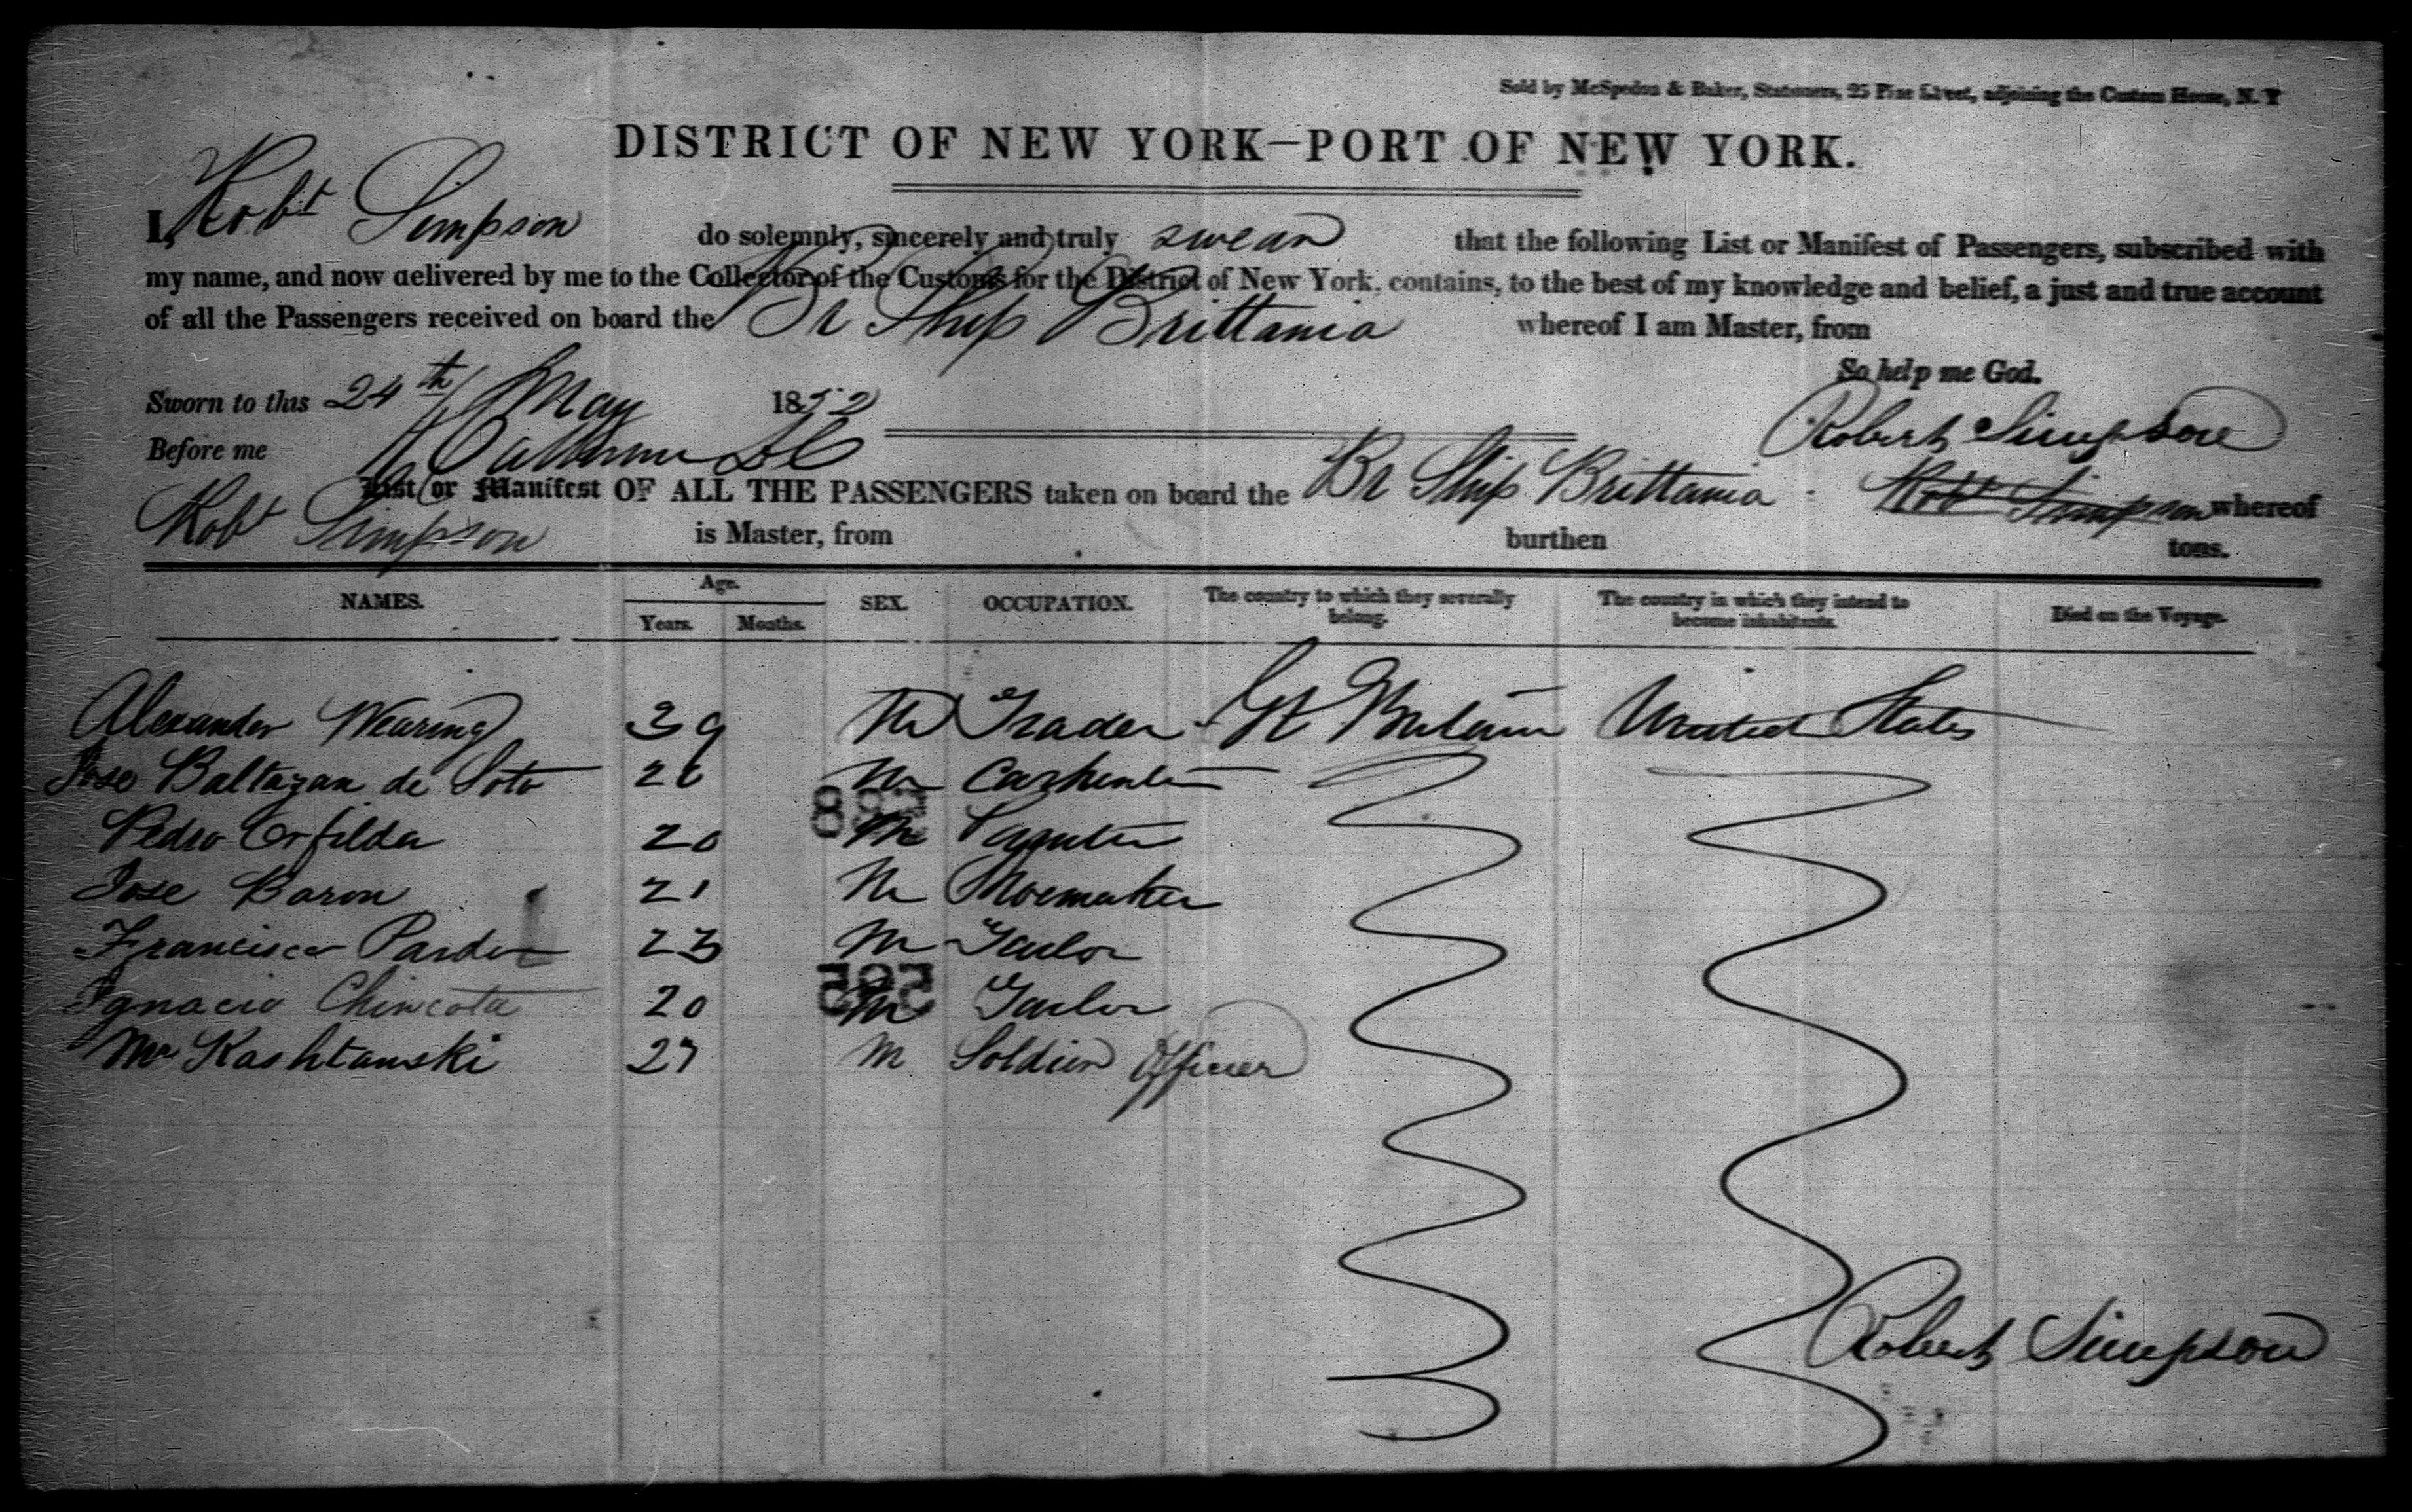 Sold by McSpedon & Baker, Stationers, 25 Pine Street, adjoining the Custom House, N. Y
DISTRICT OF NEW YORK—PORT OF NEW YORK.
I, Robt Simpson do solemnly, sincerely and truly swear that the following List or Manifest of Passengers, subscribed with
my name, and now delivered by me to the Collector of the Customs for the District of New York, contains, to the best of my knowledge and belief, a just and true account
of all the Passengers received on board the Br Ship Brittania whereof I am Master, from
So help me God.
Sworn to this 24th May 1852
Robert Simpson
Before me
List or Manifest OF ALL THE PASSENGERS taken on board the Br Ship Brittania Robt Simpson whereof
Robt Simpson is Master, from burthen tons.
NAMES. Age. Years. Months. SEX. OCCUPATION. The country to which they severally belong. The country in which they intend to become inhabitants. Died on the Voyage.
Alexander Wearing 39 M Trader Gt Britain United States
Jose Baltazan de Soto 26 M Carpenter
883
Pedro Orfilda 20 M
Jose Baron 21 M Shoemaker
Francisco Pardo 23 M Tailor
Ignacio Chincota 20 M Tailor
Mr Kashtanski 27 M Soldier Officer
Robert Simpson